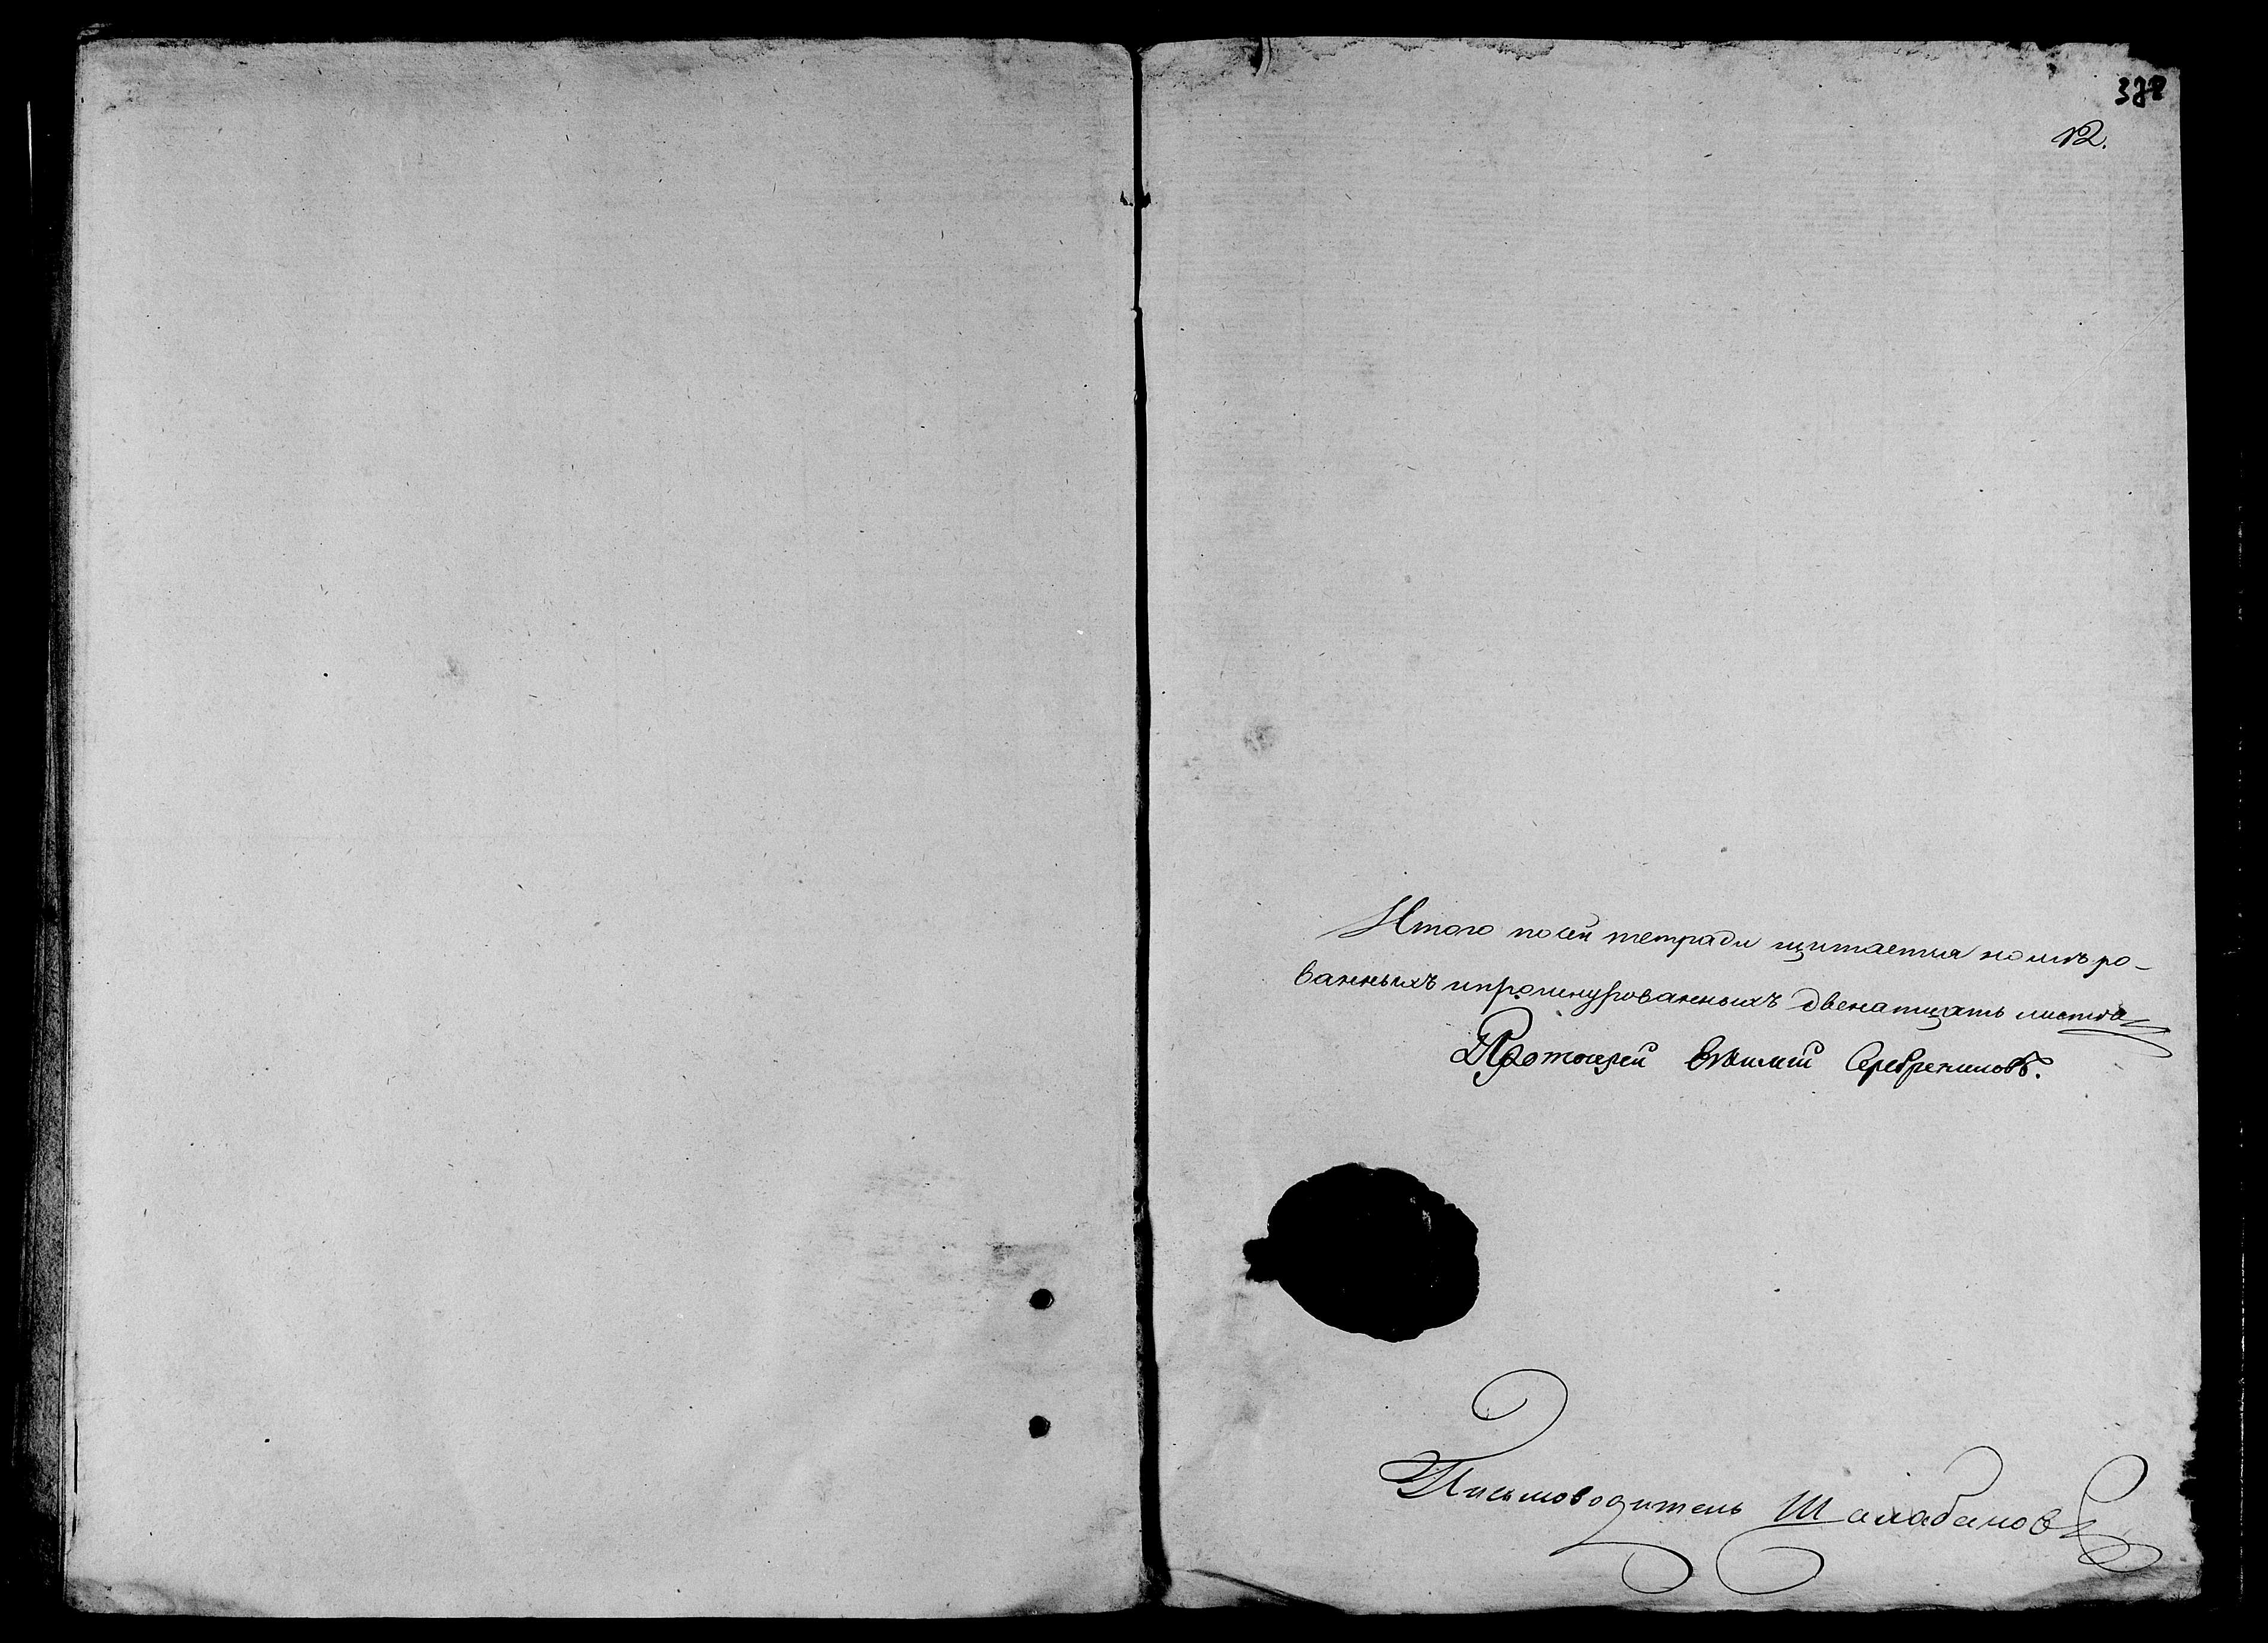 378
12.
Итого посей тетради щитается номѣро-
ванныхъ ипрошнурованныхъ двенатцать листов
Протоіерей Василій Серебрениковъ.
Письмоводитель Шалабанов